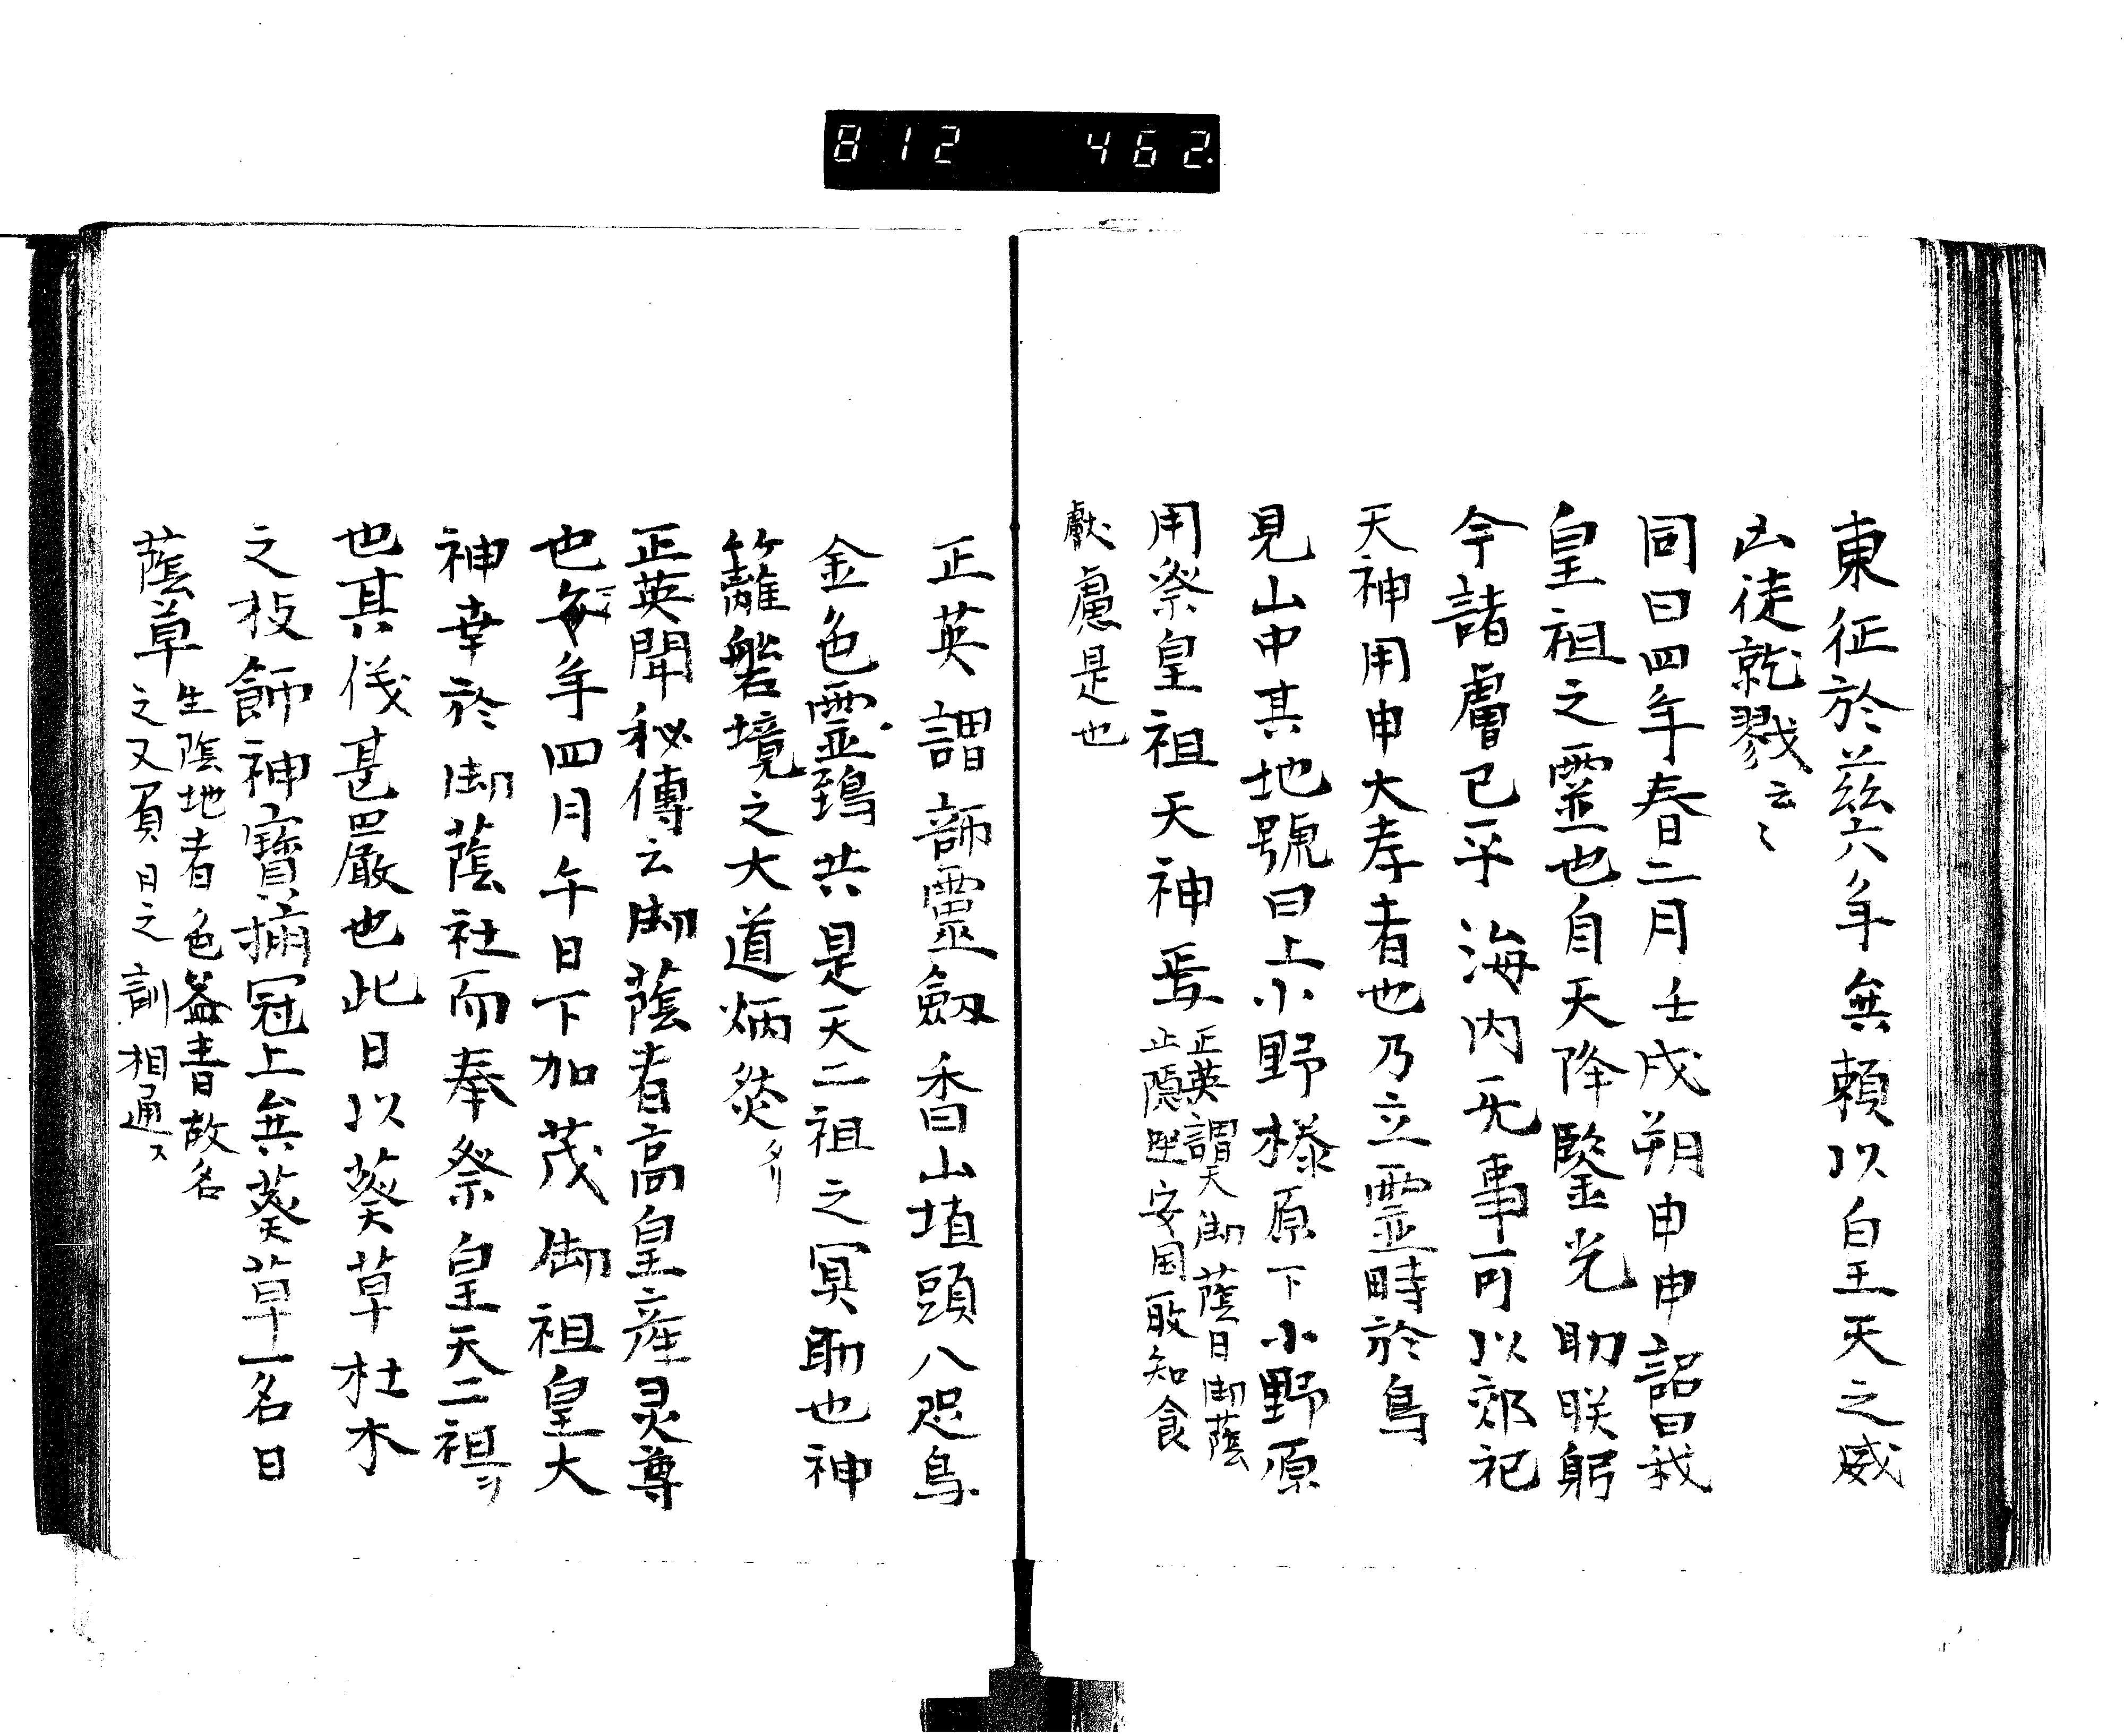 812 462
東征於茲六年無頼以皇天之威
凶徒就戮云〻
同曰四年春二月壬戌朔甲申詔曰我
皇祖之霊也自天降鑒光助朕躬
今諸虜已平海内无事可以郊祀
天神用申大孝者也乃立霊畤於鳥
見山中其地號曰上小野榛原下小野原
用祭皇祖天神焉
正英謂天御蔭日御蔭
止隠坐安国敢知食
獻慮是也
正英謂韴靈劔香山埴頭八咫鳥
金色霊鵄共是天二祖之冥助也神
籬磐境之大道炳焉
正英聞秘傳云御蔭者高皇産灵尊
也每年四月午日下加茂御祖皇大
神幸於御蔭社而奉祭皇天二祖
也其儀甚嚴也此日以葵草杜木
之枝飾神寶插冠上矣葵草一名曰
蔭草
生蔭地者色益青故名
之又負日之訓相通